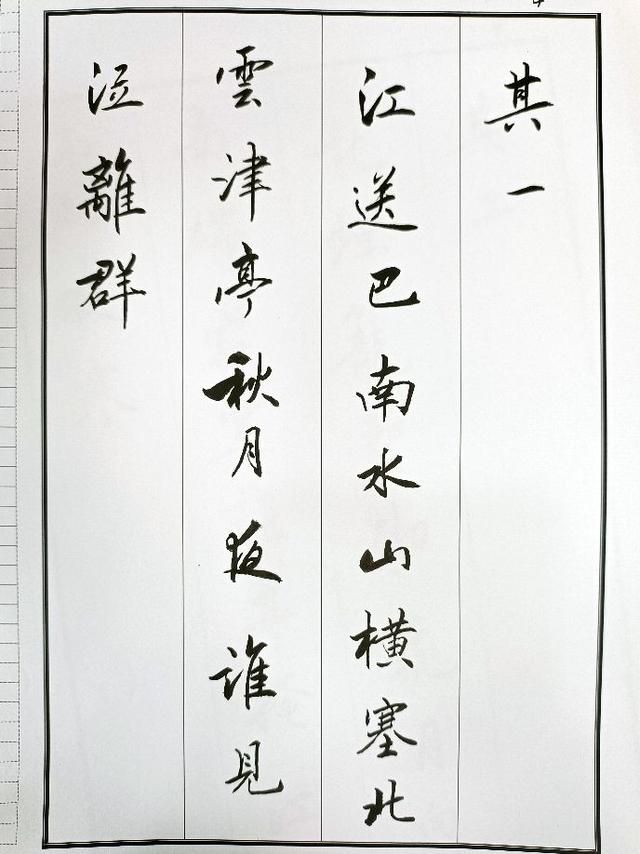 其一
江送巴南水山橫塞北
雲津亭秋月夜誰見
泣離群